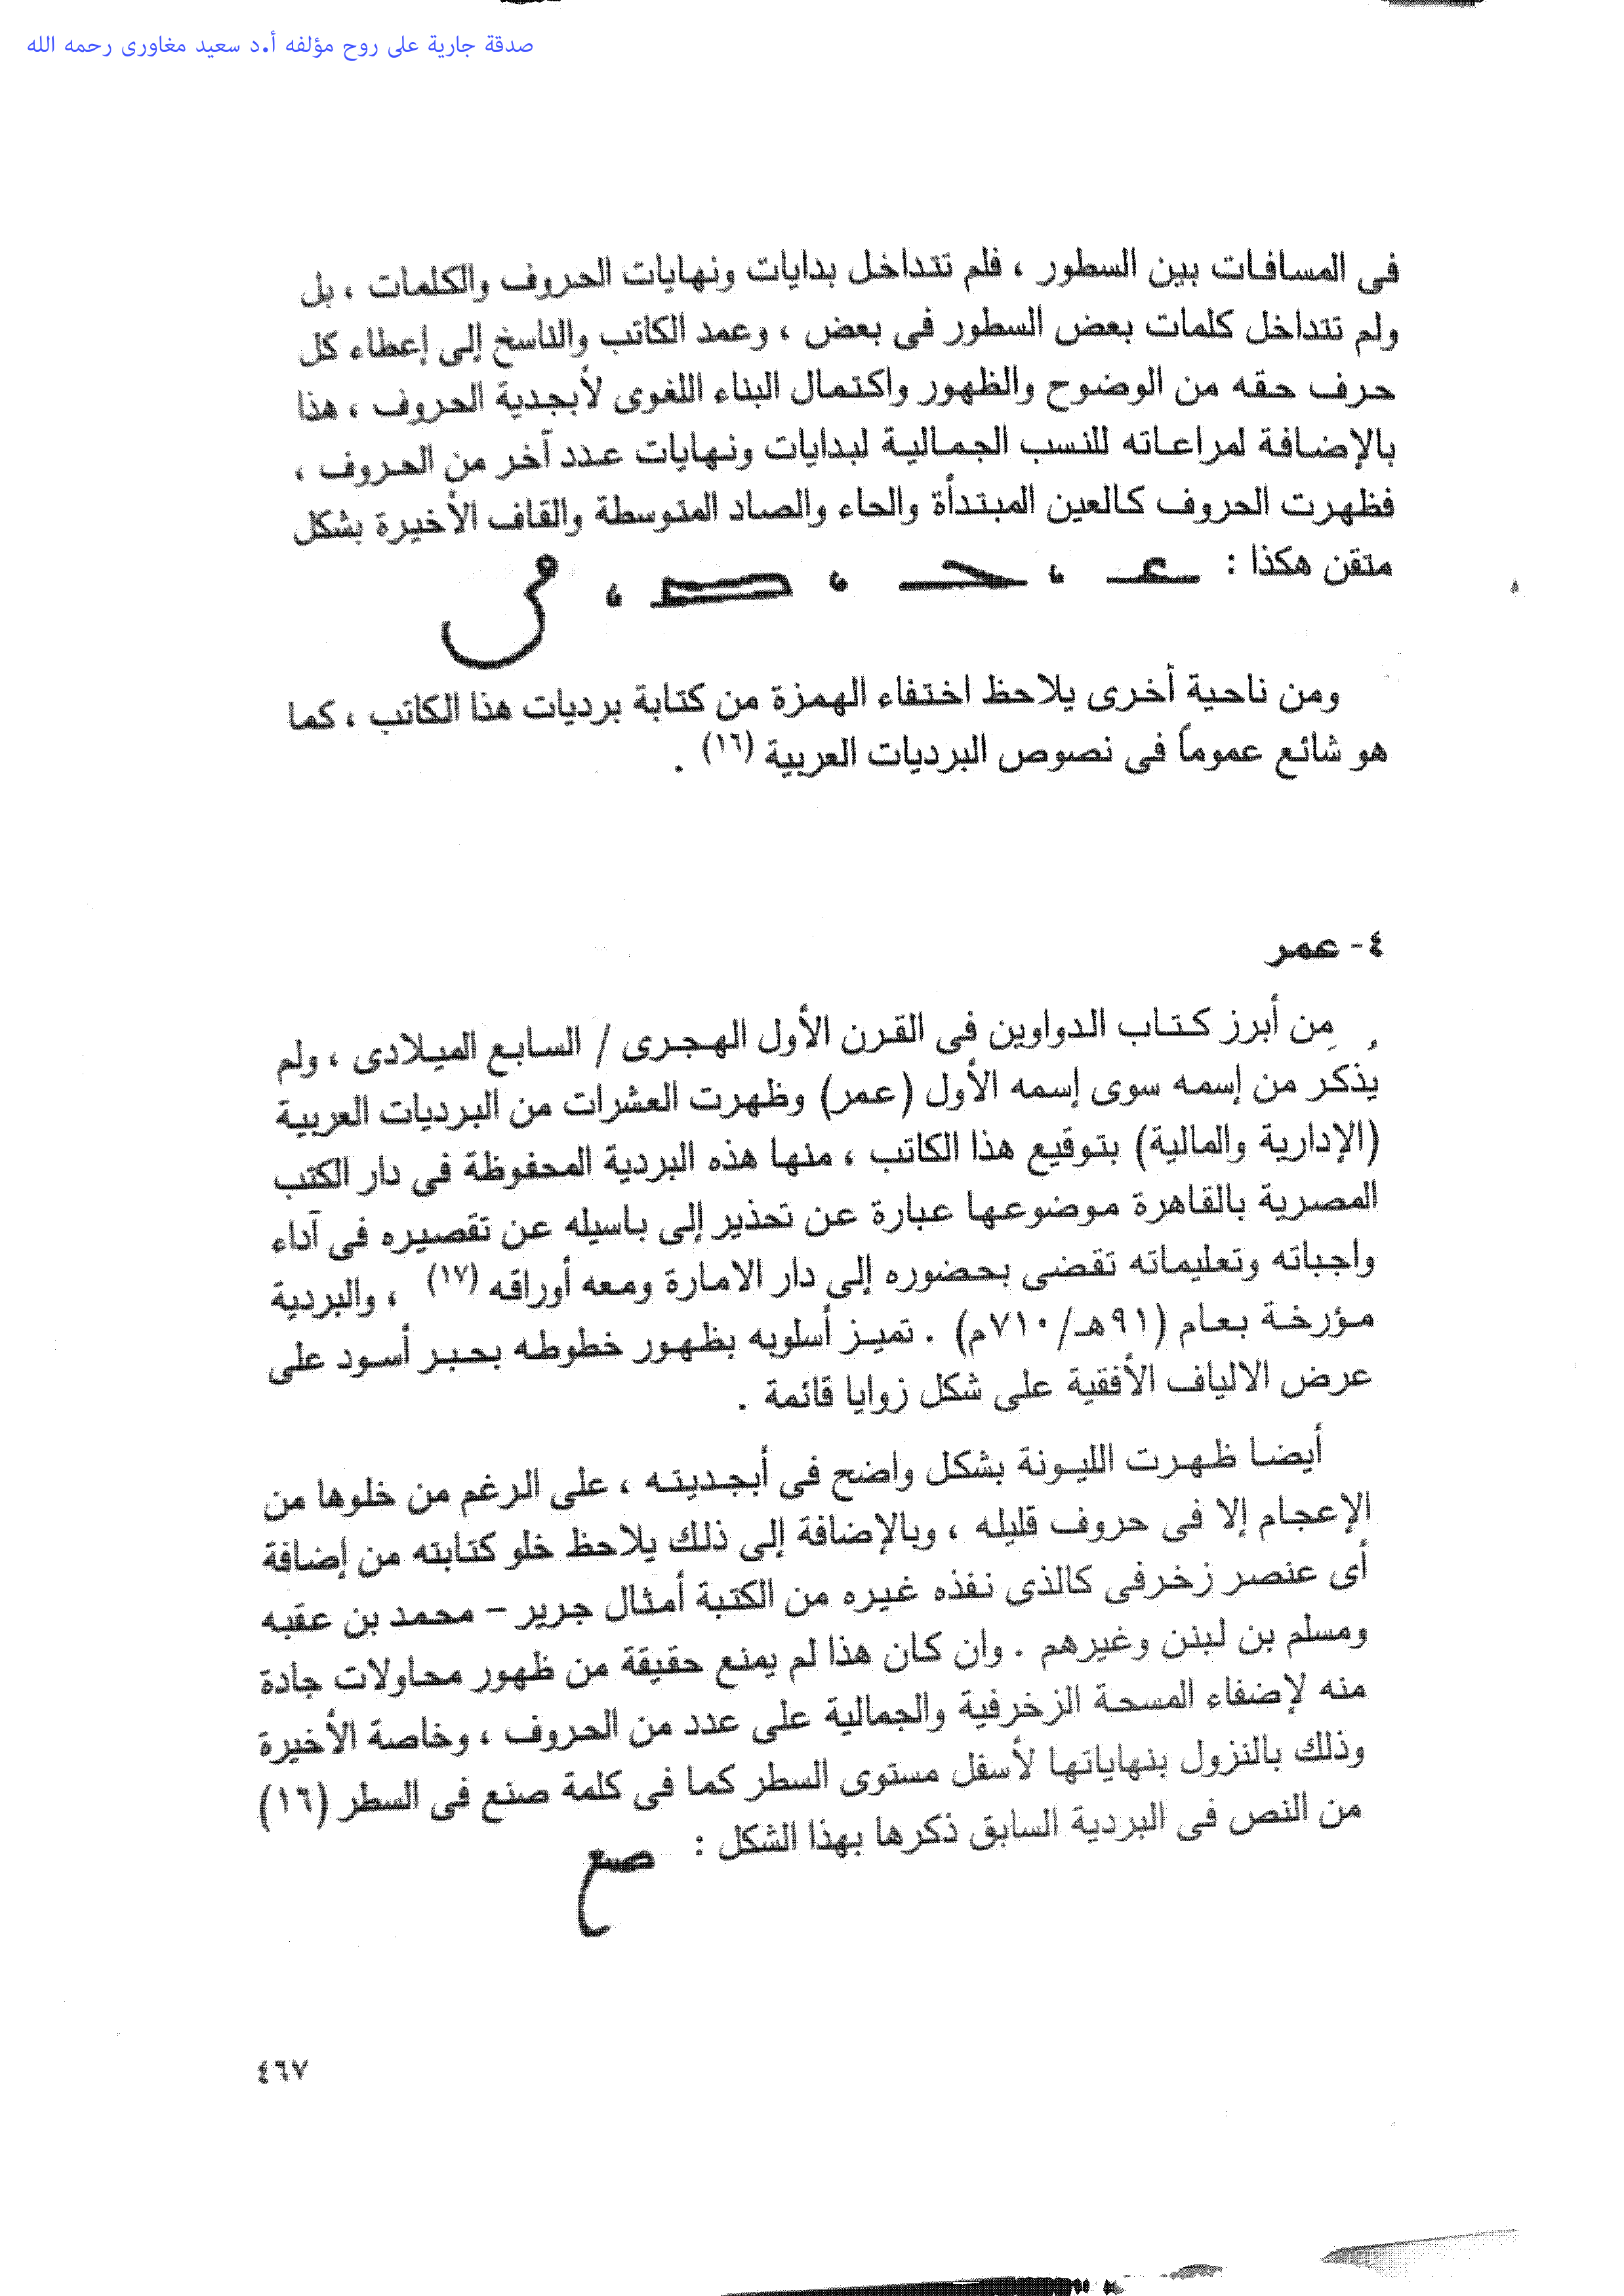 صدقة جارية على روح مؤلفه أ.د سعيد مغاورى رحمه الله
فى المسافات بين السطور ، فلم تتداخل بدايات ونهايات الحروف والكلمات ، بل
ولم تتداخل كلمات بعض السطور فى بعض ، وعمد الكاتب والناسخ إلى إعطاء كل
حرف حقه من الوضوح والظهور واكتمال البناء اللغوى لأبجدية الحروف ، هذا
بالإضافة لمراعاته للنسب الجمالية لبدايات ونهايات عدد آخر من الحروف ،
فظهرت الحروف كالعين المبتدأة والحاء والصاد المتوسطة والقاف الأخيرة بشكل
متقن هكذا : عـ ، حـ ، ـصـ ، ق
ومن ناحية أخرى يلاحظ اختفاء الهمزة من كتابة برديات هذا الكاتب ، كما
هو شائع عموماً فى نصوص البرديات العربية (١٦) .
٤- عمر
من أبرز كتاب الدواوين فى القرن الأول الهجرى / السابع الميلادى ، ولم
يُذكر من إسمه سوى إسمه الأول (عمر) وظهرت العشرات من البرديات العربية
(الإدارية والمالية) بتوقيع هذا الكاتب ، منها هذه البردية المحفوظة فى دار الكتب
المصرية بالقاهرة موضوعها عبارة عن تحذير إلى باسيله عن تقصيره فى آداء
واجباته وتعليماته تقضى بحضوره إلى دار الامارة ومعه أوراقه (١٧) ، والبردية
مؤرخة بعام (٩١هـ/٧١٠م) . تميز أسلوبه بظهور خطوطه بحبر أسود على
عرض الالياف الأفقية على شكل زوايا قائمة .
أيضا ظهرت الليونة بشكل واضح فى أبجديته ، على الرغم من خلوها من
الإعجام إلا فى حروف قليله ، وبالإضافة إلى ذلك يلاحظ خلو كتابته من إضافة
أى عنصر زخرفى كالذى نفذه غيره من الكتبة أمثال جرير – محمد بن عقبه
ومسلم بن لبنن وغيرهم . وان كان هذا لم يمنع حقيقة من ظهور محاولات جادة
منه لإضفاء المسحة الزخرفية والجمالية على عدد من الحروف ، وخاصة الأخيرة
وذلك بالنزول بنهاياتها لأسفل مستوى السطر كما فى كلمة صنع فى السطر (١٦)
من النص فى البردية السابق ذكرها بهذا الشكل : صنع
٤٦٧